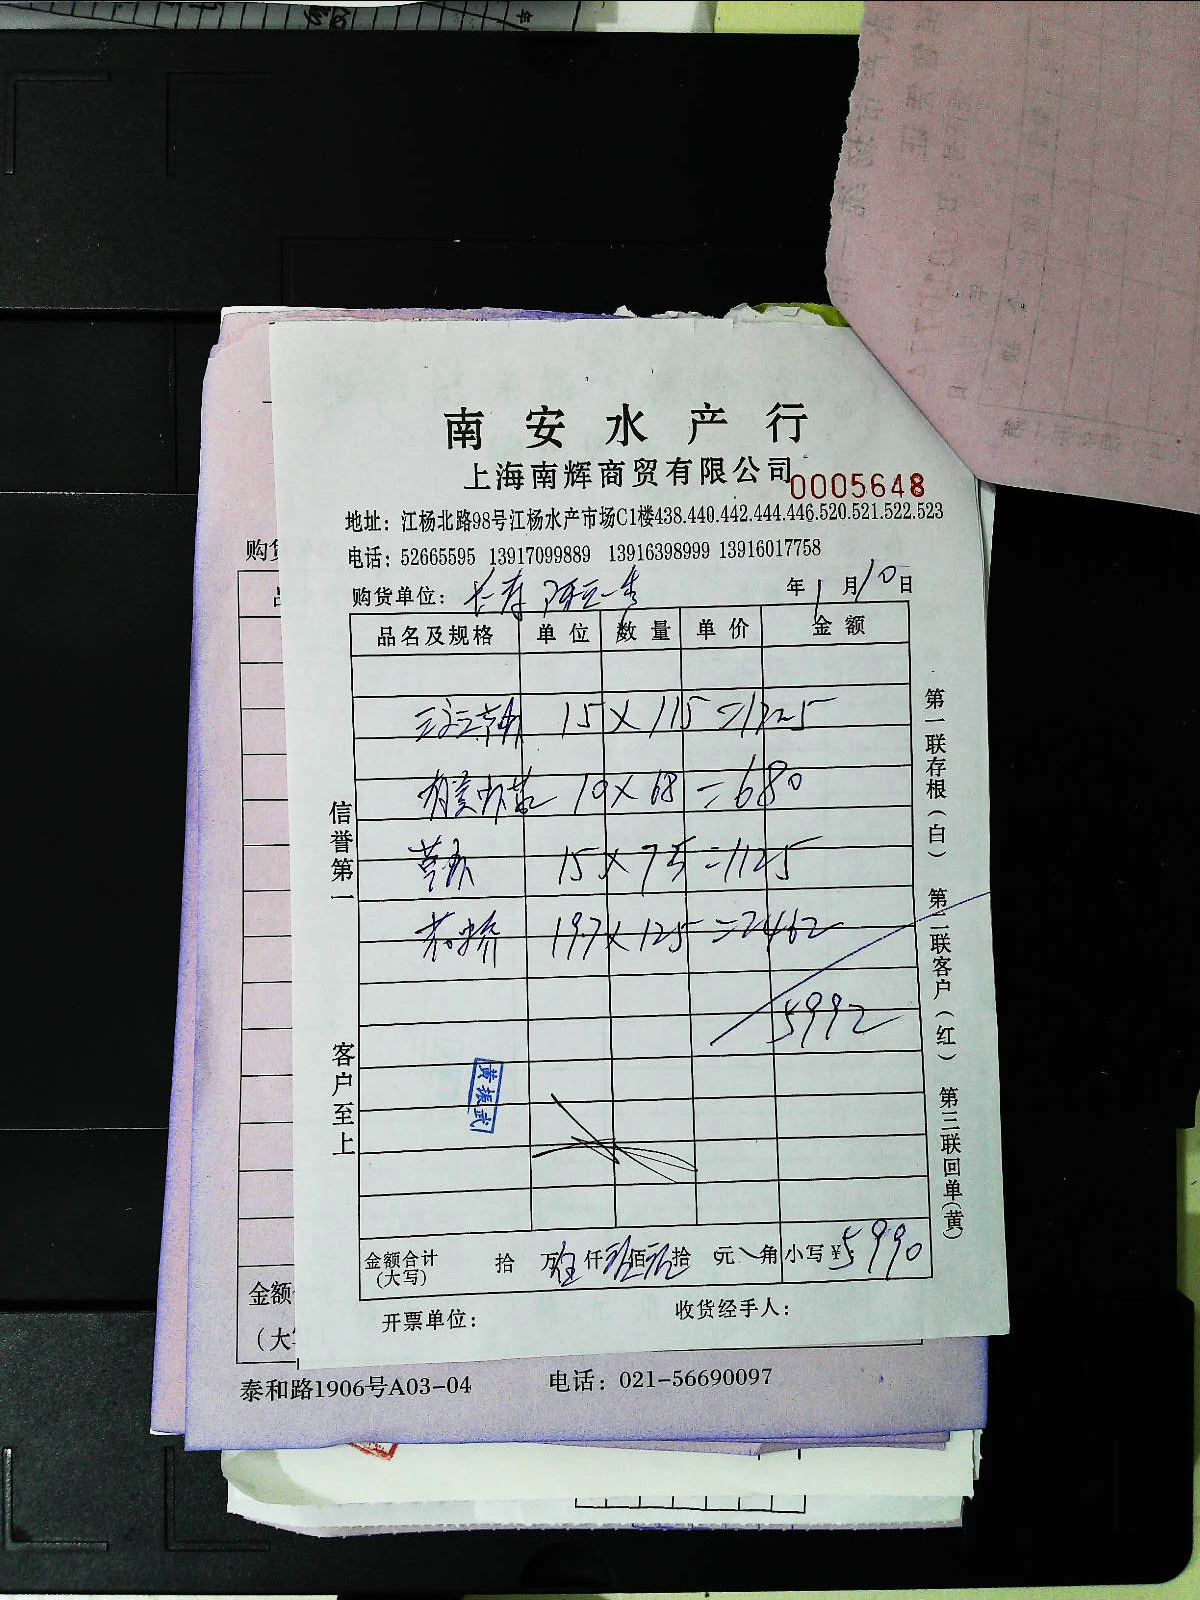 南安水产行
上海南辉商贸有限公司
0005648
地址：江杨北路98号江杨水产市场C1楼438.440.442.444.446.520.521.522.523
电话：52665595 13917099889 13916398999 13916017758
购货单位：长寿
年1月10日
品名及规格 单位 数量 单价 金额
15×115=1725
10×68=680
15×75=1125
197×125=2462
5992
黄振武
金额合计(大写) 拾 万 伍 仟 佰 拾 元 角 小写￥：5990
开票单位： 收货经手人：
信誉第一
客户至上
第一联存根(白) 第二联客户(红) 第三联回单(黄)
购货
金额
(大写
泰和路1906号A03-04 电话：021-56690097